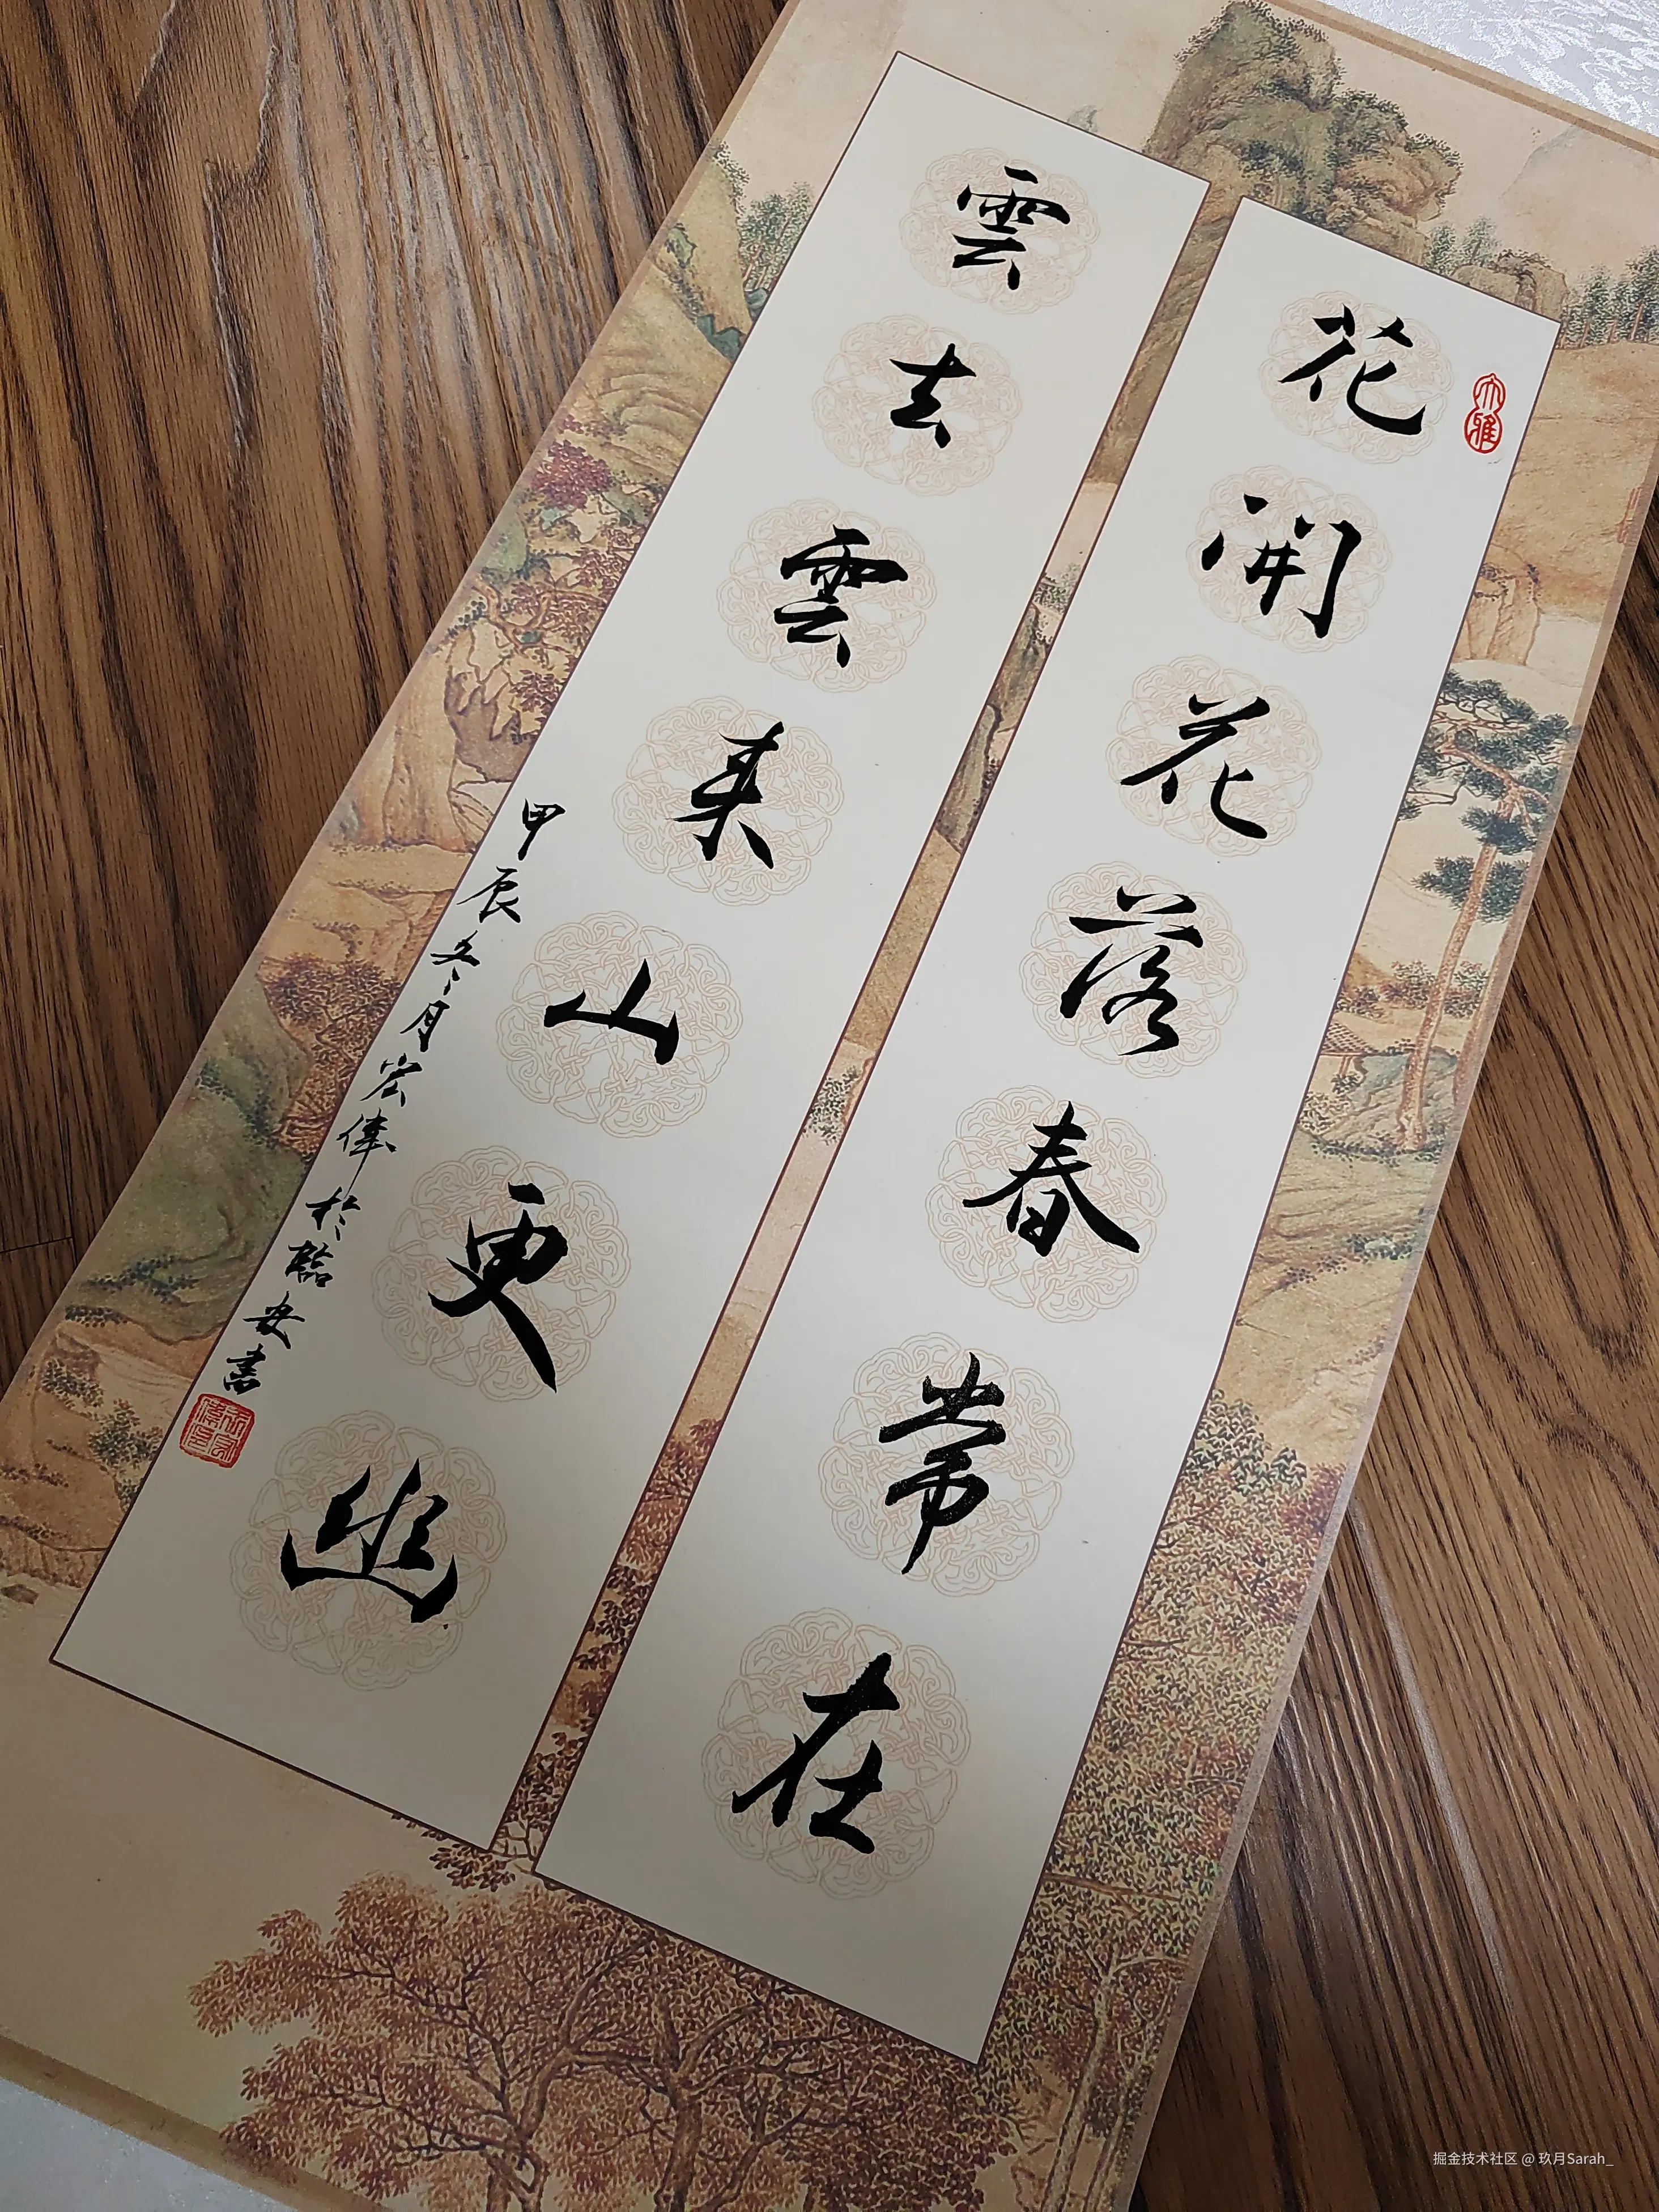 花開花落春常在
大雅
雲去雲来山更幽
甲辰冬月宏偉於臨安書
掘金技术社区 @ 玖月Sarah_